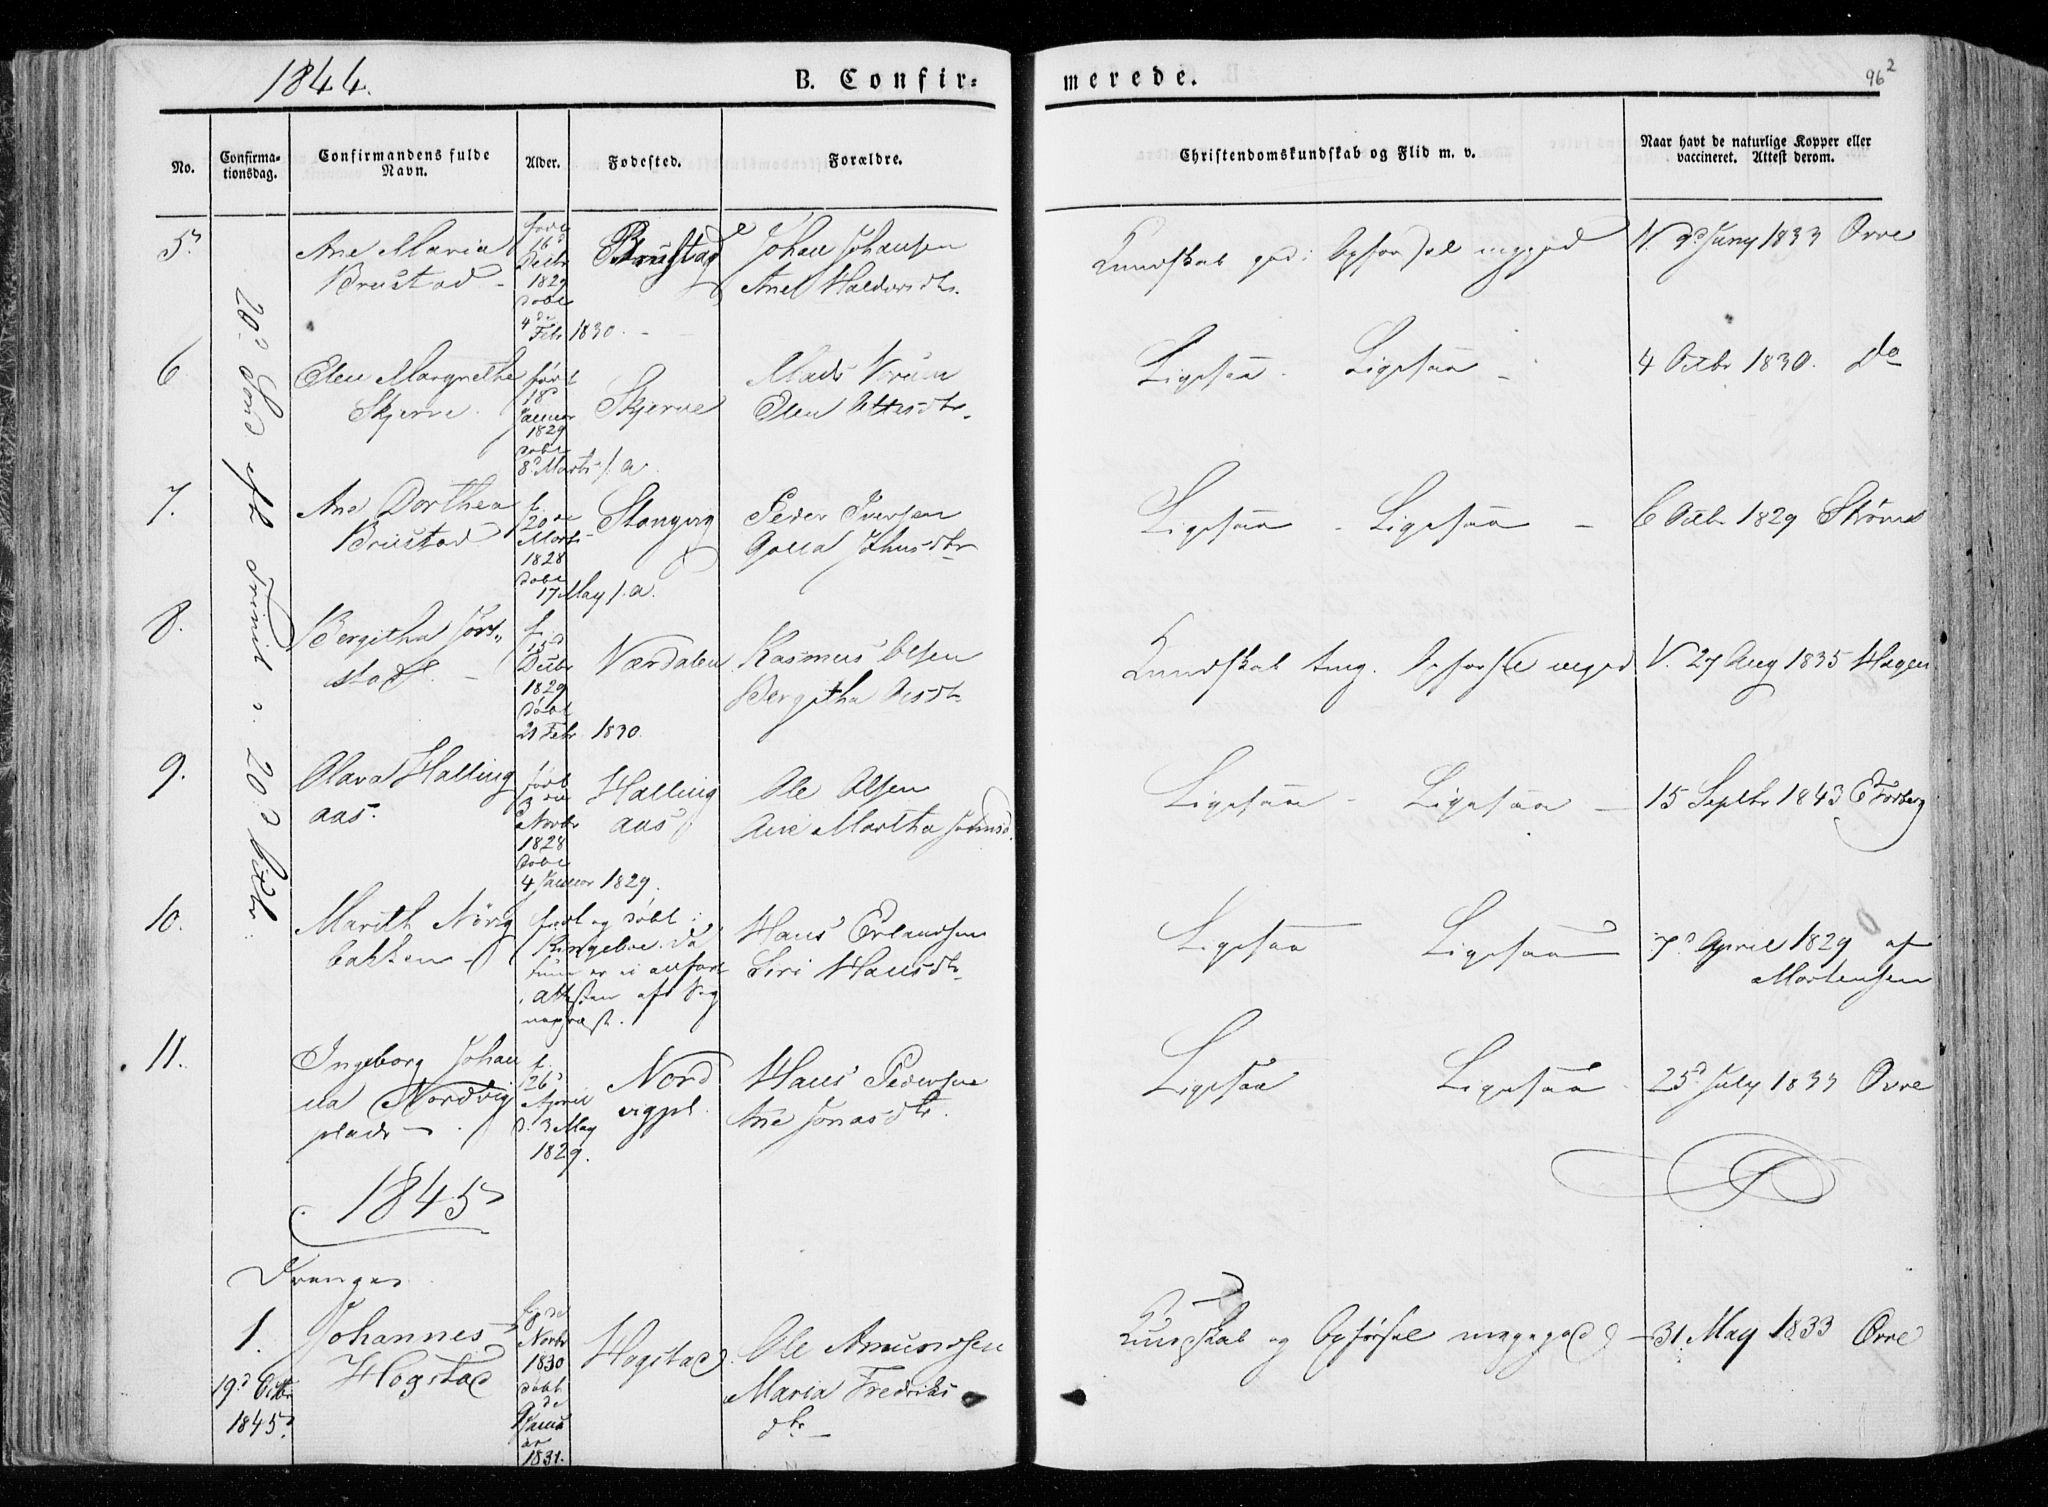 1844.
B. Confir=
merede.
96²
No.
Confirma-
tionsdag.
Confirmandens fulde
Navn.
Alder.
Fødested.
Forældre.
Christendomskundskab og Flid m. v.
Naar havt de naturlige Kopper eller
vaccineret. Attest derom.
20de Sønd. eft. Trinit. d. 20de Octbr.
5.
Ane Maria
Brustad
født
16d
Decbr
1829
døbt
4de
Febr 1830.
Brustad
Johan Johansen
Anel Haldorsdtr.
Kundskab god. Opførsel megegod
V. 9d Juny 1833 Øvre
6
Elen Margrethe
Skjerve.
født
18d
Januar
1829
døbt
8d Marts s. a.
Skjerve
Mads
Elen Ottesdtr.
Ligesaa. Ligesaa
4 Octbr 1830. do
7.
Ane Dorthea
Brustad
f.
20de
Marts
1828
døbt
17 May s. a.
Peder Iversen
Ligesaa - Ligesaa -
6 Octbr 1829 Strøm
8.
Bergitha Jørs-
stad.
f.
15d
Decbr
1829
døbt
21 Febr 1830.
Værdalen
Rasmus Olsen
Bergitha
Kundskab tmg. Opførsel meget
V. 27 Aug 1835 Hagen
9.
Olava Halling
aas.
født
3die
Novbr
1828
døbt
4 Januar 1829.
Halling
aas
Ole Olsen
Ane Martha
Ligesaa - Ligesaa -
15 Septbr 1843 E Forberg
10.
Marith
bakken
født og døbt i
Ringeboe. Da
tum er ei anført
i Attesten afd Sog
nepræst.
Hans Erlandsen
Siri Hansdtr
Ligesaa Ligesaa
7d April 1829 af
Mortensen
11.
Ingeborg Johan
na Nordvig
plads
f.
26d
April
d. 3 May
1829.
Nord
vigpl.
Hans Pedersen
Ane Jonasdtr.
Ligesaa Ligesaa
25d July 1833 Øvre
1845
Drenge
1.
19d Octbr
1845.
Johannes
Hogstad
8de
Novbr
1830
døbt
9de
Janu
ar
1831.
Hogstad
Ole Amundsen
Maria Fredriks
dtr
Kundskab og Opførsel megegod
31. May 1833 Øvre